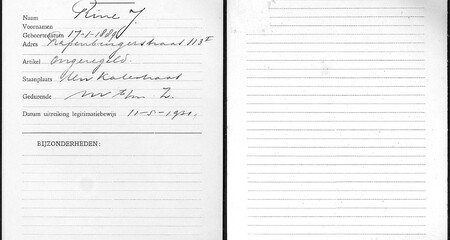 Naam Rine J.
Voornamen
Geboortedatum 17-1-1889
Adres Kepenburgerstraat 113 II
Artikel ongeregeld.
Staanplaats Ten Katestraat
Gedurende m t/m Z.
Datum uitreiking legitimatiebewijs 11-5-1921.
BIJZONDERHEDEN: